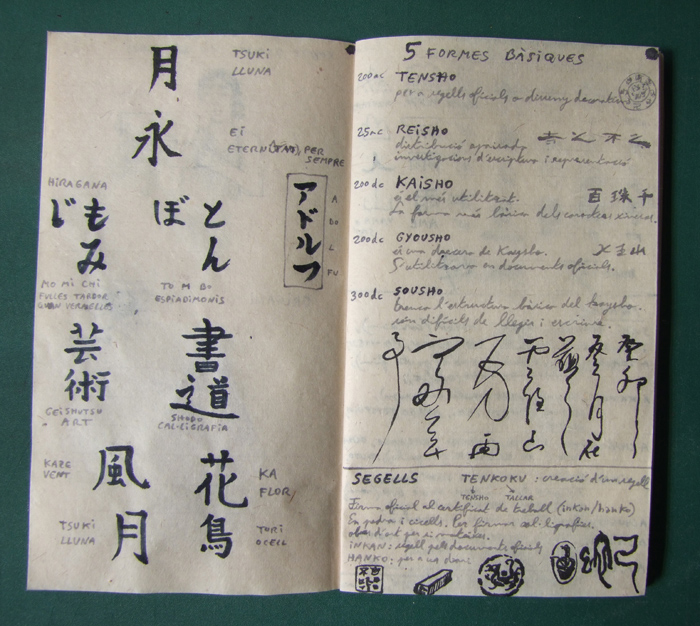 月
TSUKI
LLUNA
永
Ei
ETERN(ITAT), PER
SEMPRE
HIRAGANA
もみじ
MO Mi CHi
FULLES TARDOR i
とんぼ
TO M BO
ESPIADIMONIS
アドルフ
A
DO
L
FU
芸術
GEISHUTSU
ART
書道
SHODO
CAL·LIGRAFIA
風
KAZE
VENT
月
TSUKI
LLUNA
花
KA
FLOR
鳥
TORI
OCELL
5 FORMES BÀSIQUES
200ac TENSHO
per a segells oficials o disseny decoratiu
25ac REiSHO
distribució
investigacions d'escriptura i representació
200dc KAiSHO
és el més utilitzat.
La forma més bàsica dels caràcters xinesos.
200dc GYOUSHO
és una drecera de Kaysho.
S'utilitzava en documents oficials.
300dc SOUSHO
trenca l'estructura bàsica del
són difícils de llegir i escriure.
SEGELLS
TENKOKU : creació d'un segell
TENSHO TALLAR
Firma oficial al certificat de treball (inkan/hanko)
En pedra i cisells. Per firmar cal·ligrafies,
obres d'art per a notaires.
iNKAN: segell pels documents oficials
HANKO: per a